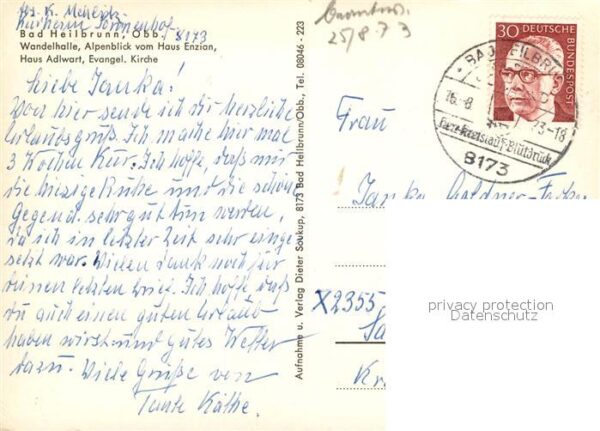 Kurheim Sonnenhof
8173
Bad Heilbrunn, Obb.
Wandelhalle, Alpenblick vom Haus Enzian,
Haus Adlwart, Evangel. Kirche
Liebe Janka!
Von hier sende ich dir herzliche
Urlaubsgrüße. Ich mache hier mal
3 Wochen Kur. Ich hoffe, daß mir
die hiesige Ruhe und die schöne
Gegend sehr gut tun werden,
da ich in letzter Zeit sehr einge
setzt war. Vielen Dank noch für
deinen letzten Brief. Ich hoffe daß
du auch einen guten Urlaub
haben wirst und gutes Wetter
dazu. Viele Grüße von
Tante Käthe.
Aufnahme u. Verlag Dieter Soukup, 8173 Bad Heilbrunn/Obb., Tel. 08046 - 223
25/8 73
30 DEUTSCHE BUNDESPOST
BAD HEILBRU
-73-18
Herz-Kreislauf-Blutdruck
8173
Frau
Janka
X2355
privacy protection
Datenschutz